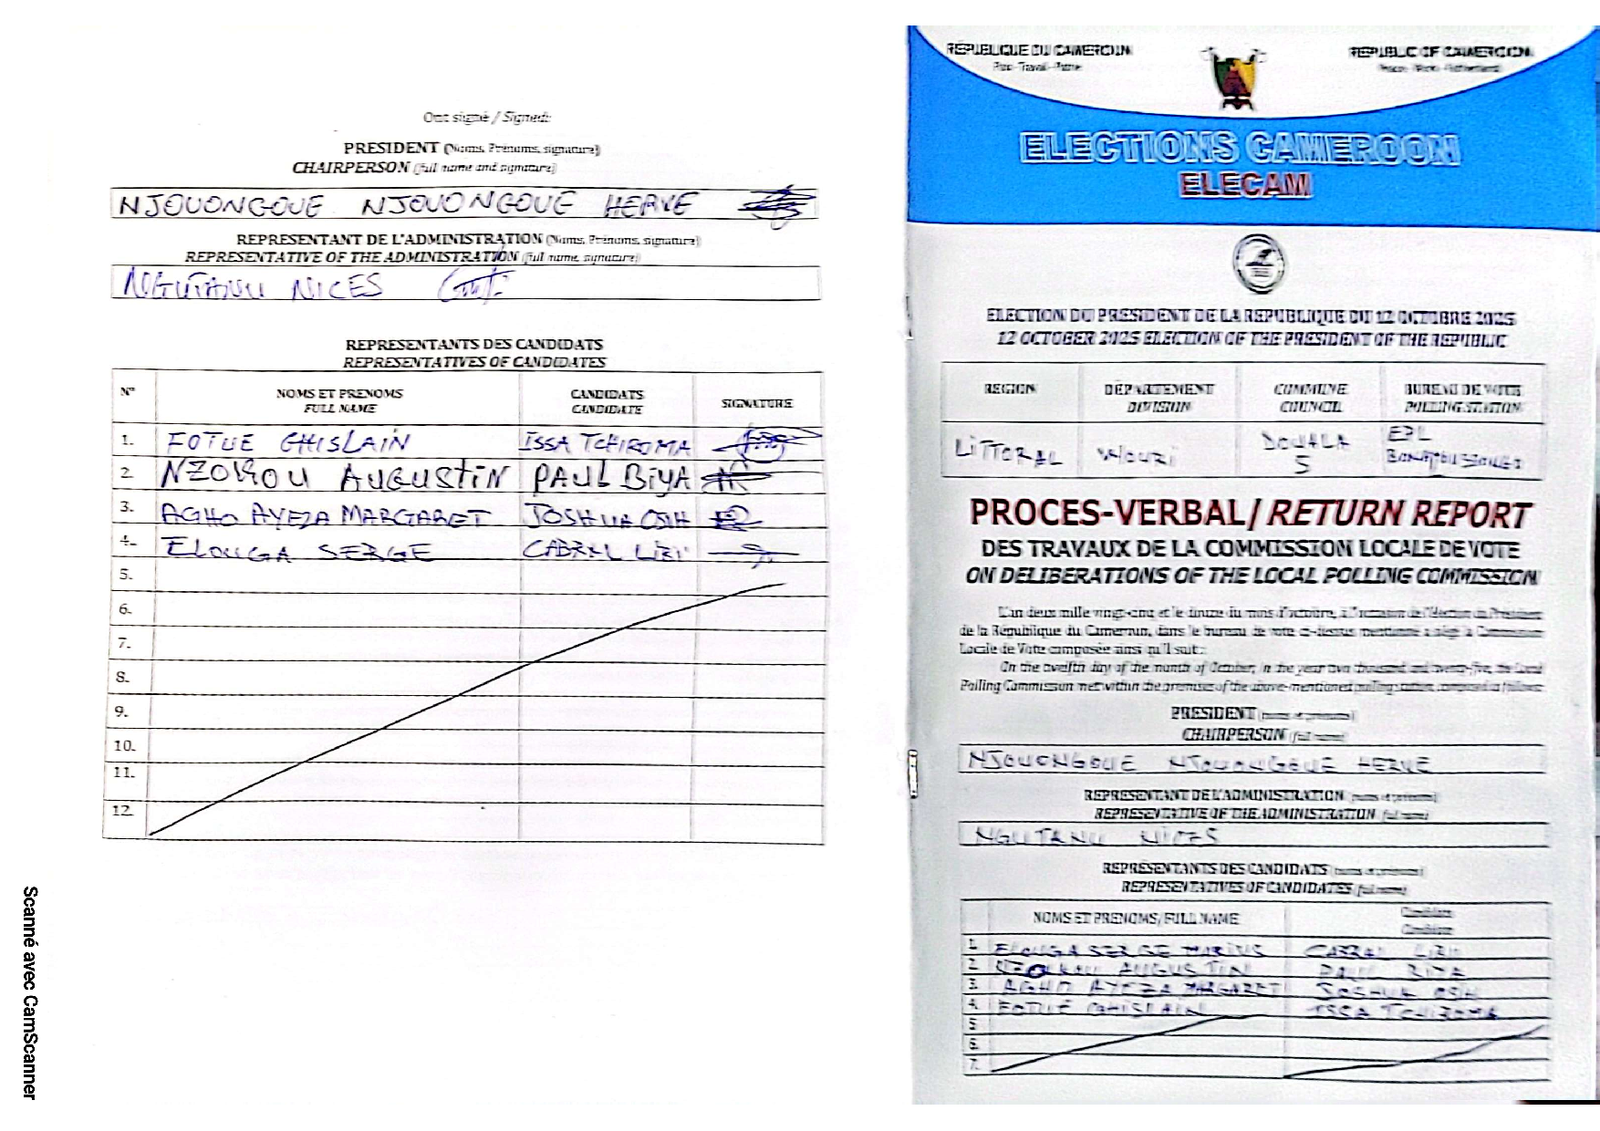 Ont signé / Signed:
PRESIDENT (Noms, Prénoms, signature)
CHAIRPERSON (full name and signature)
NJOUONGOUE NJOUONGOUE HERVE
REPRESENTANT DE L'ADMINISTRATION (Noms, Prénoms, signature)
REPRESENTATIVE OF THE ADMINISTRATION (full name, signature)
NGUTANU NICES
REPRESENTANTS DES CANDIDATS
REPRESENTATIVES OF CANDIDATES
N° NOMS ET PRENOMS CANDIDATS SIGNATURE
FULL NAME CANDIDATE
1. FOTUE GHISLAIN ISSA TCHIROMA
2. NZOKOU AUGUSTIN PAUL BIYA
3. AGHO AYEZA MARGARET JOSHUA OSIH
4. ELOUGA SERGE CABRAL LIBII
5.
6.
7.
8.
9.
10.
11.
12.
Scanné avec CamScanner
RÉPUBLIQUE DU CAMEROUN REPUBLIC OF CAMEROON
Paix - Travail - Patrie Peace - Work - Fatherland
ELECTIONS CAMEROON
ELECAM
ELECTION DU PRESIDENT DE LA REPUBLIQUE DU 12 OCTOBRE 2025
12 OCTOBER 2025 ELECTION OF THE PRESIDENT OF THE REPUBLIC
REGION DÉPARTEMENT COMMUNE BUREAU DE VOTE
DIVISION COUNCIL POLLING STATION
LITTORAL WOURI DOUALA 5
PROCES-VERBAL / RETURN REPORT
DES TRAVAUX DE LA COMMISSION LOCALE DE VOTE
ON DELIBERATIONS OF THE LOCAL POLLING COMMISSION
L'an deux mille vingt-cinq et le douze du mois d'octobre, à l'occasion de l'élection du Président
de la République du Cameroun, dans le bureau de vote ci-dessus mentionné a siégé la Commission
Locale de Vote composée ainsi qu'il suit :
On the twelfth day of the month of October, in the year two thousand and twenty-five, the Local
Polling Commission met within the premises of the above-mentioned polling station, composed as follows:
PRESIDENT (noms et prénoms)
CHAIRPERSON (full name)
NJOUONGOUE NJOUONGOUE HERVE
REPRÉSENTANT DE L'ADMINISTRATION (noms et prénoms)
REPRESENTATIVE OF THE ADMINISTRATION (full name)
NGUTANU NICES
REPRÉSENTANTS DES CANDIDATS (noms et prénoms)
REPRESENTATIVES OF CANDIDATES (full name)
NOMS ET PRENOMS/FULL NAME Candidats
Candidate
1. ELOUGA SERGE MARIUS CABRAL LIBII
2. NZOKOU AUGUSTIN PAUL BIYA
3. AGHO AYEZA MARGARET JOSHUA OSIH
4. FOTUE GHISLAIN ISSA TCHIROMA
5.
6.
7.